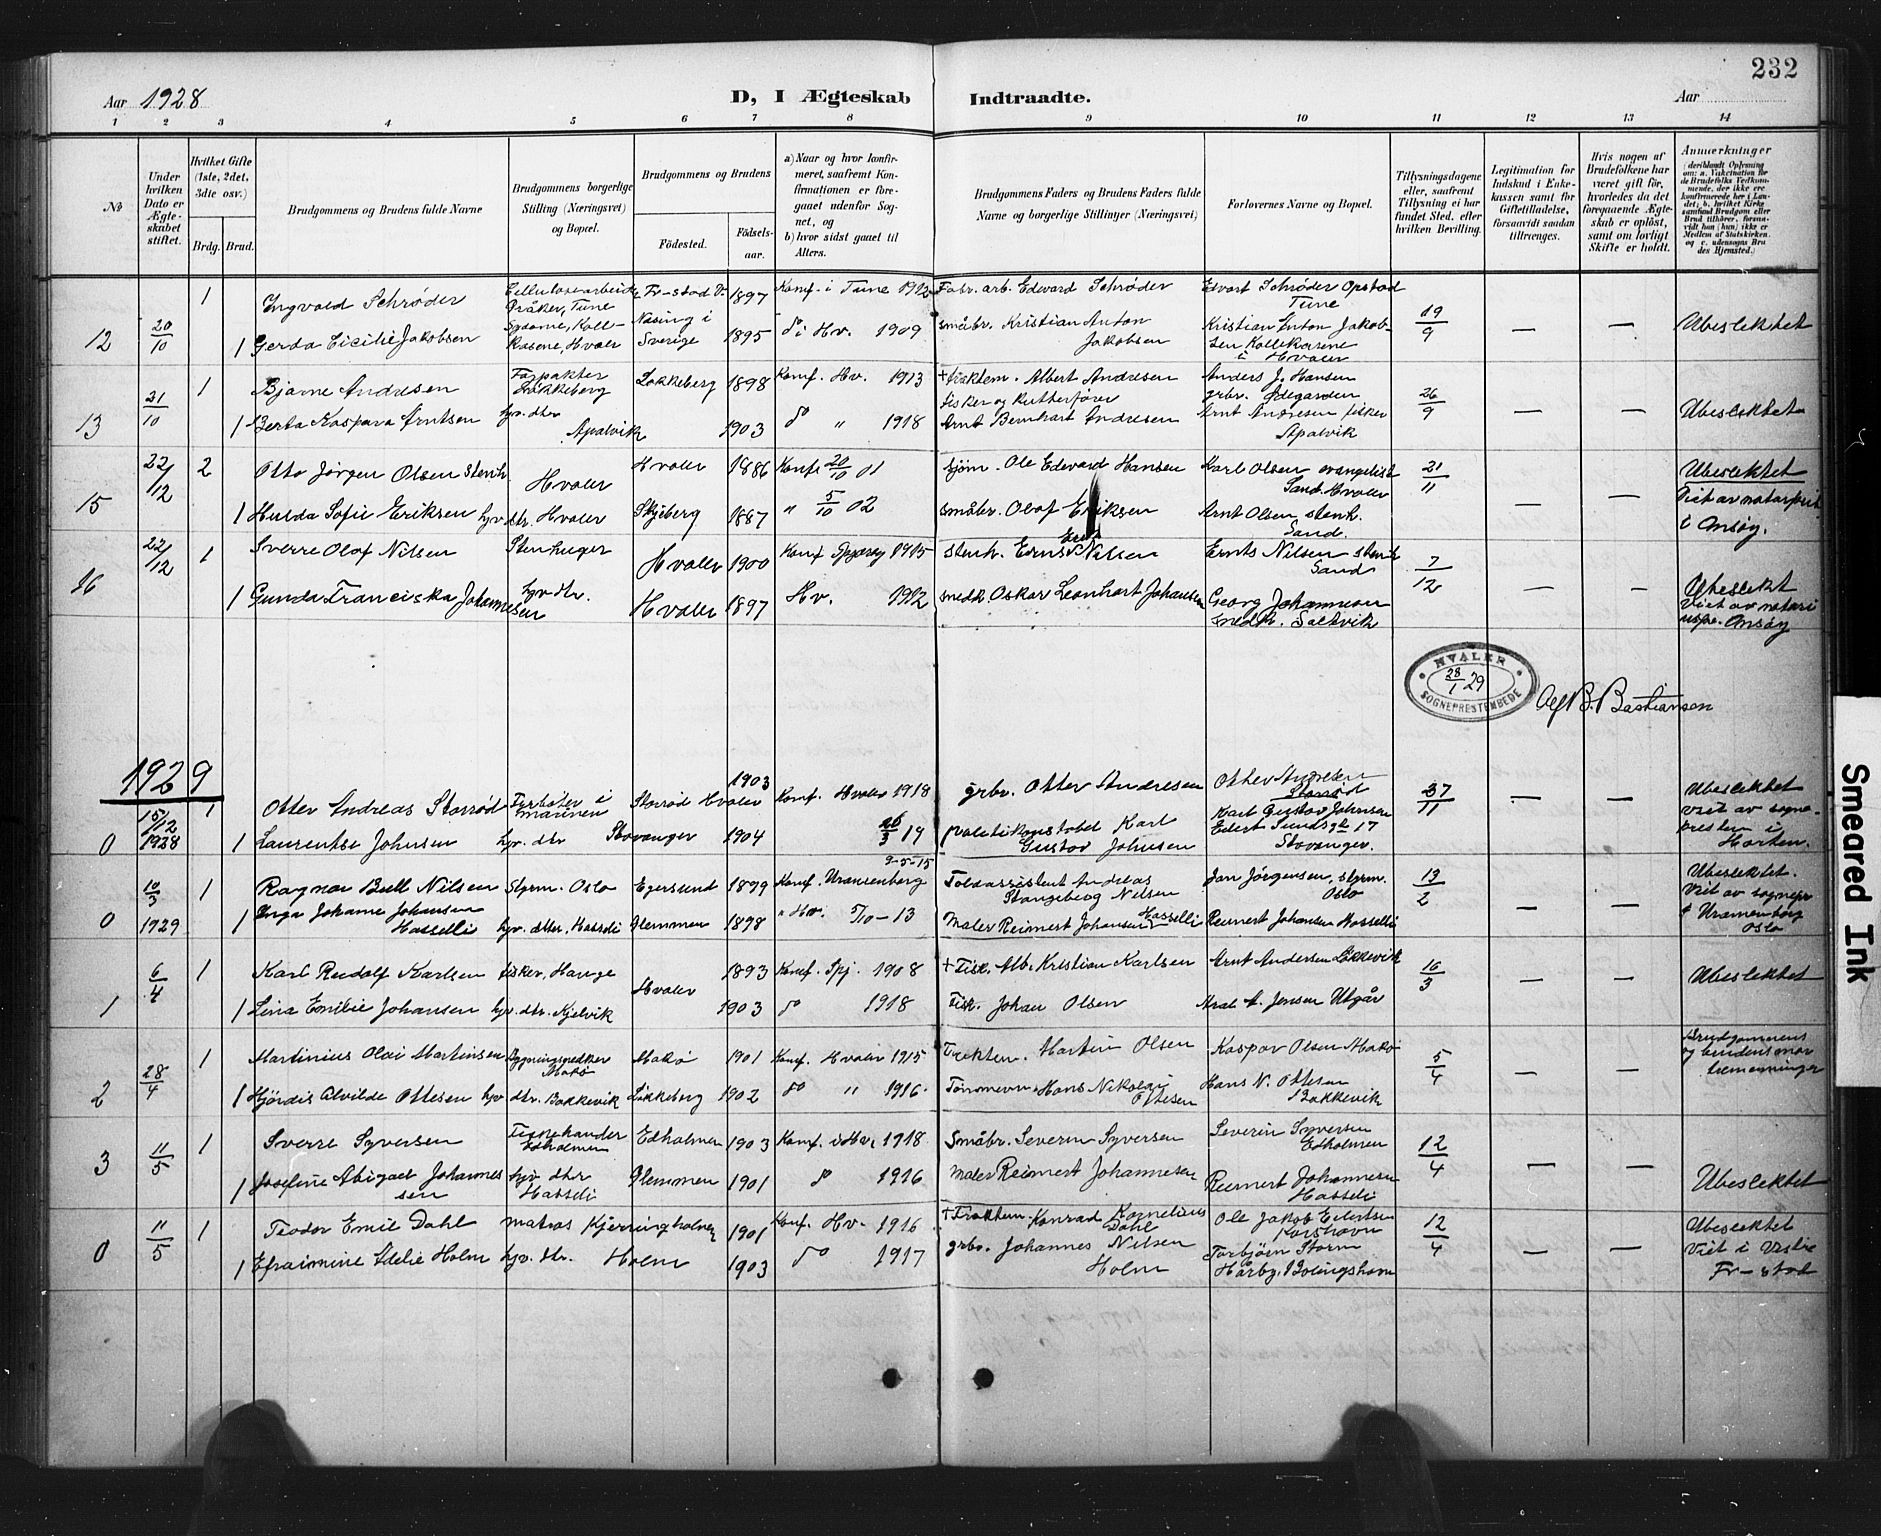 232
Aar 1928
D, I Ægteskab Indtraadte.
Aar
1 2 3 4 5 6 7 8 9 10 11 12 13 14
No
Under hvilken Dato er Ægteskabet stiftet.
Hvilket Gifte (1ste, 2det, 3die osv.)
Brdg. Brud.
Brudgommens og Brudens fulde Navne
Brudgommens borgerlige Stilling (Næringsvei) og Bopæl.
Brudgommens og Brudens
Fødested. Fødselsaar.
a) Naar og hvor konfirmeret, saafremt Konfirmationen er foregaaet udenfor Sognet, og
b) hvor sidst gaaet til Alters.
Brudgommens Faders og Brudens Faders fulde Navne og borgerlige Stillinger (Næringsvei)
Forlovernes Navne og Bopæl.
Tillysningsdagene eller, saafremt Tillysning ei har fundet Sted, efter hvilken Bevilling.
Legitimation for Indskud i Enkekassen samt for Giftetilladelse, forsaavidt saadan tiltrænges.
Hvis nogen af Brudefolkene har været gift før, hvorledes da det foregaaende Ægteskab er opløst, samt om lovligt Skifte er holdt.
Anmerkninger
12 20/10 1 Ingvald Schrøder Cellulosearbeider Gråker, Tune Fr-stad 1897 Konf. i Tune 1912 Fabr. arb. Edvard Schrøder Edvart Schrøder Opstad Tune 19/9 — — Ubeslektet
1 Gerda Cicilie Jakobsen Hvaler Näsinge i Sverige 1895 do i Hv. 1909 småbr. Kristian Anton Jakobsen Kristian Anton Jakobsen Kollekasene i Hvaler
13 21/10 1 Bjarne Andresen Løkkeberg Løkkeberg 1898 Konf. Hv. 1913 + Traktem. Albert Andresen Anders J. Hansen grbr. Ødegarden 26/9 — — Ubeslektet
1 Berta Kaspara Arntsen hjv. dtr Apalvik 1903 do " 1918 fisker og kutterfører Arnt Bernhart Andresen Arnt Andresen fisker Apalvik
15 22/12 2 Otto Jørgen Olsen stenh. Hvaler Hvaler 1886 Konf. 20/10 01 sjøm. Ole Edvard Hansen Karl Olsen evangelist Sand, Hvaler 21/11 — Ubeslektet
1 Hulda Sofie Eriksen hjv. dtr. Hvaler Skjeberg 1887 " 5/10 02 småbr. Olof Eriksen Arnt Olsen stenh. Sand.
16 22/12 1 Sverre Olaf Nilsen Stenhuger Hvaler 1900 Konf. 1915 stenh. Nilsen Ernts Nilsen stenh Sand 7/12 — — Ubeslekt
1 Gunda Franciska Johannesen hjv. dtr. Hvaler 1897 Hv. 1912 snedk. Oskar Leonhart Johansen Georg Johannesen snedk. Saltvik
HVALER 28/1 29 SOGNEPRESTEMBEDE
Alf B. Bastiansen
1929
0 15/12 1928 1 Otter Andreas Storrød Fyrbøter i marinen Storrød Hvaler 1903 Konf. Hvaler 1918 grbr. Otter Andresen Otter Andresen Storrød 27/11 — — Ubeslektet Viet av sognepresten i Horten.
1 Laurentse Johnsen hjv. dtr Stavanger 1904 26/3 19 politikonstabel Karl Gustav Johnsen Karl Gustav Johnsen Stavanger.
0 10/3 1929 1 Ragnar Bull Nilsen Styrm. Oslo Egersund 1899 Konf. Uranienborg 2-5-15 Toldassistent Andreas Stangeberg Nilsen Jan Jörgensen, styrm. Oslo 13/2 — — Ubeslektet. Viet av sognepr i Uranienborg Oslo
1 Inga Johanne Johansen Hasselli hjv. dtr. Hasseli Glemmen 1898 " Hv. 5/10-13 Maler Reinert Johansen Hasselli Reinert Johansen Hasselli
1 6/4 1 Karl Rudolf Karlsen fisker, Hauge Hvaler 1893 Konf. Spj. 1908 + Fisk. Alb. Kristian Karlsen Arnt Andersen Løkkevik 16/3 — — Ubeslektet
1 Lina Emilie Johansen hjv. dtr. Kjelvik 1903 do 1918 Fisk. Johan Olsen Jensen Utgår
2 28/4 1 Martinius Olai Martinsen Bygningssnedker Makø Makø 1901 Konf. Hvaler 1915 Traktem. Martin Olsen Kaspar Olsen Makø 5/4 — — Brudgommens og brudens mor tremenninger
1 Hjørdis Alvilde Ottesen hjv dtr. Bakkevik Løkkeberg 1902 do " 1916. Tømmerm. Hans Nikolai Ottesen Hans N. Ottesen Bakkevik
3 11/5 1 Sverre Syversen Fiskehandler Edholmen Edholmen 1903 Konf. i Hv. 1918 Småbr. Severin Syversen Severin Syversen Edholmen 12/4 — — Ubeslektet
1 Josefine Abigael Johannessen hjv. dtr Hasseli Glemmen 1901 do 1916 Maler Reinert Johannesen Reinert Johannesen Hasseli
0 11/5 1 Teodor Emil Dahl matros Kjerringholmen 1901 Konf. Hv. 1916 + Traktem. Konrad Kornelius Dahl Ole Jakob Eilertsen Korshavn 12/4 — — Ubeslektet Viet i Vestre Fr-stad
1 Efraimine Adelie Holm hjv. dtr. Holm 1903 do 1917 grbr. Johannes Nilsen Holm Torbjørn Storm
Smeared Ink